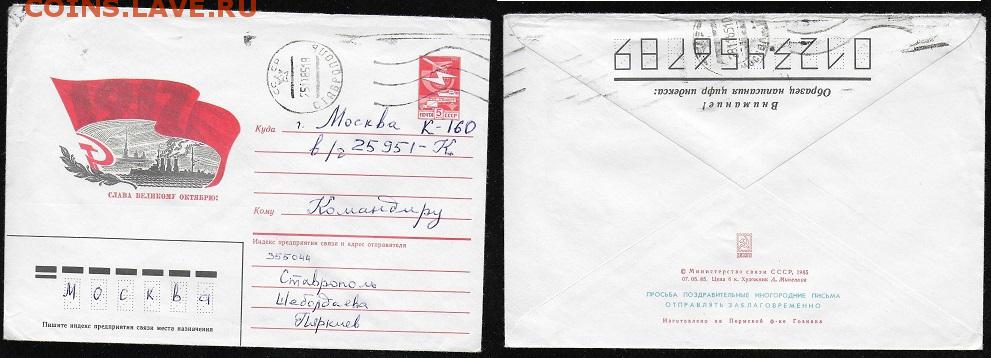 coins.LAVE.RU
1917
СЛАВА ВЕЛИКОМУ ОКТЯБРЮ!
СТАВРОПОЛЬ
25 11 85 19
ПОЧТА 5 СССР
Куда г. Москва К-160
в/ч 25951-К
Кому Командиру
Индекс предприятия связи и адрес отправителя
355044
Ставрополь
Шеболдаева
Пяркиев
Москва
Пишите индекс предприятия связи места назначения
0123456789
Образец написания цифр индекса:
Внимание!
© Министерство связи СССР, 1985
07. 05. 85. Цена 6 к. Художник А.
ПРОСЬБА ПОЗДРАВИТЕЛЬНЫЕ ИНОГОРОДНИЕ ПИСЬМА
ОТПРАВЛЯТЬ ЗАБЛАГОВРЕМЕННО
Изготовлено на Пермской ф-ке Гознака